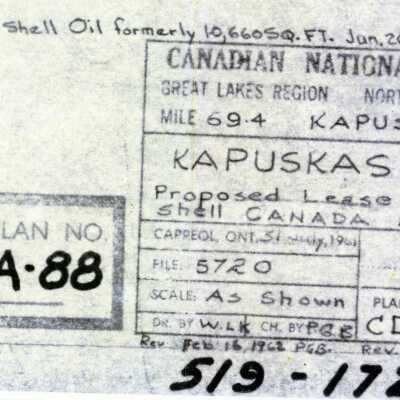 Shell Oil formerly 10,660 SQ. FT. Jun. 20
CANADIAN NATIONA
GREAT LAKES REGION NORT
MILE 69.4 KAPUS
KAPUSKAS
Proposed Lease
Shell CANADA
CAPREOL, ONT. 31 July, 1961
FILE: 5720
SCALE: As Shown PLA
DR. BY W.L.K CH. BY P.G.B. CD
Rev Feb 16, 1962 P.G.B. Rev.
LAN NO.
A-88
519-172